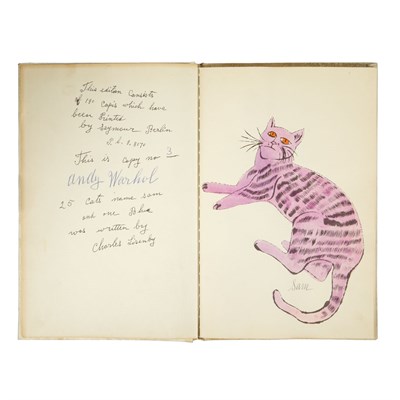 This edition consists
of 190 copies which have
been Printed
by Seymour Berlin
This is copy no 3
Andy Warhol
25 Cats name sam
and one Blue
was written by
Charles Lisanby
Sam